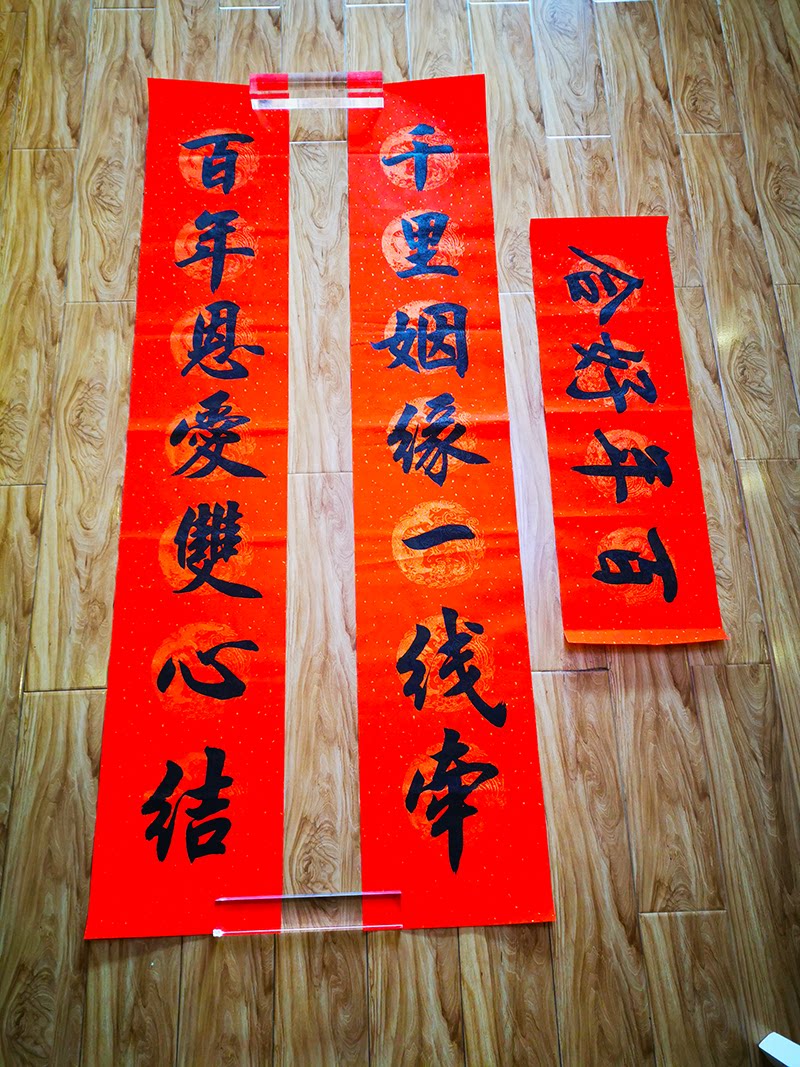 千里姻缘一线牵
百年恩愛雙心结
百年好合